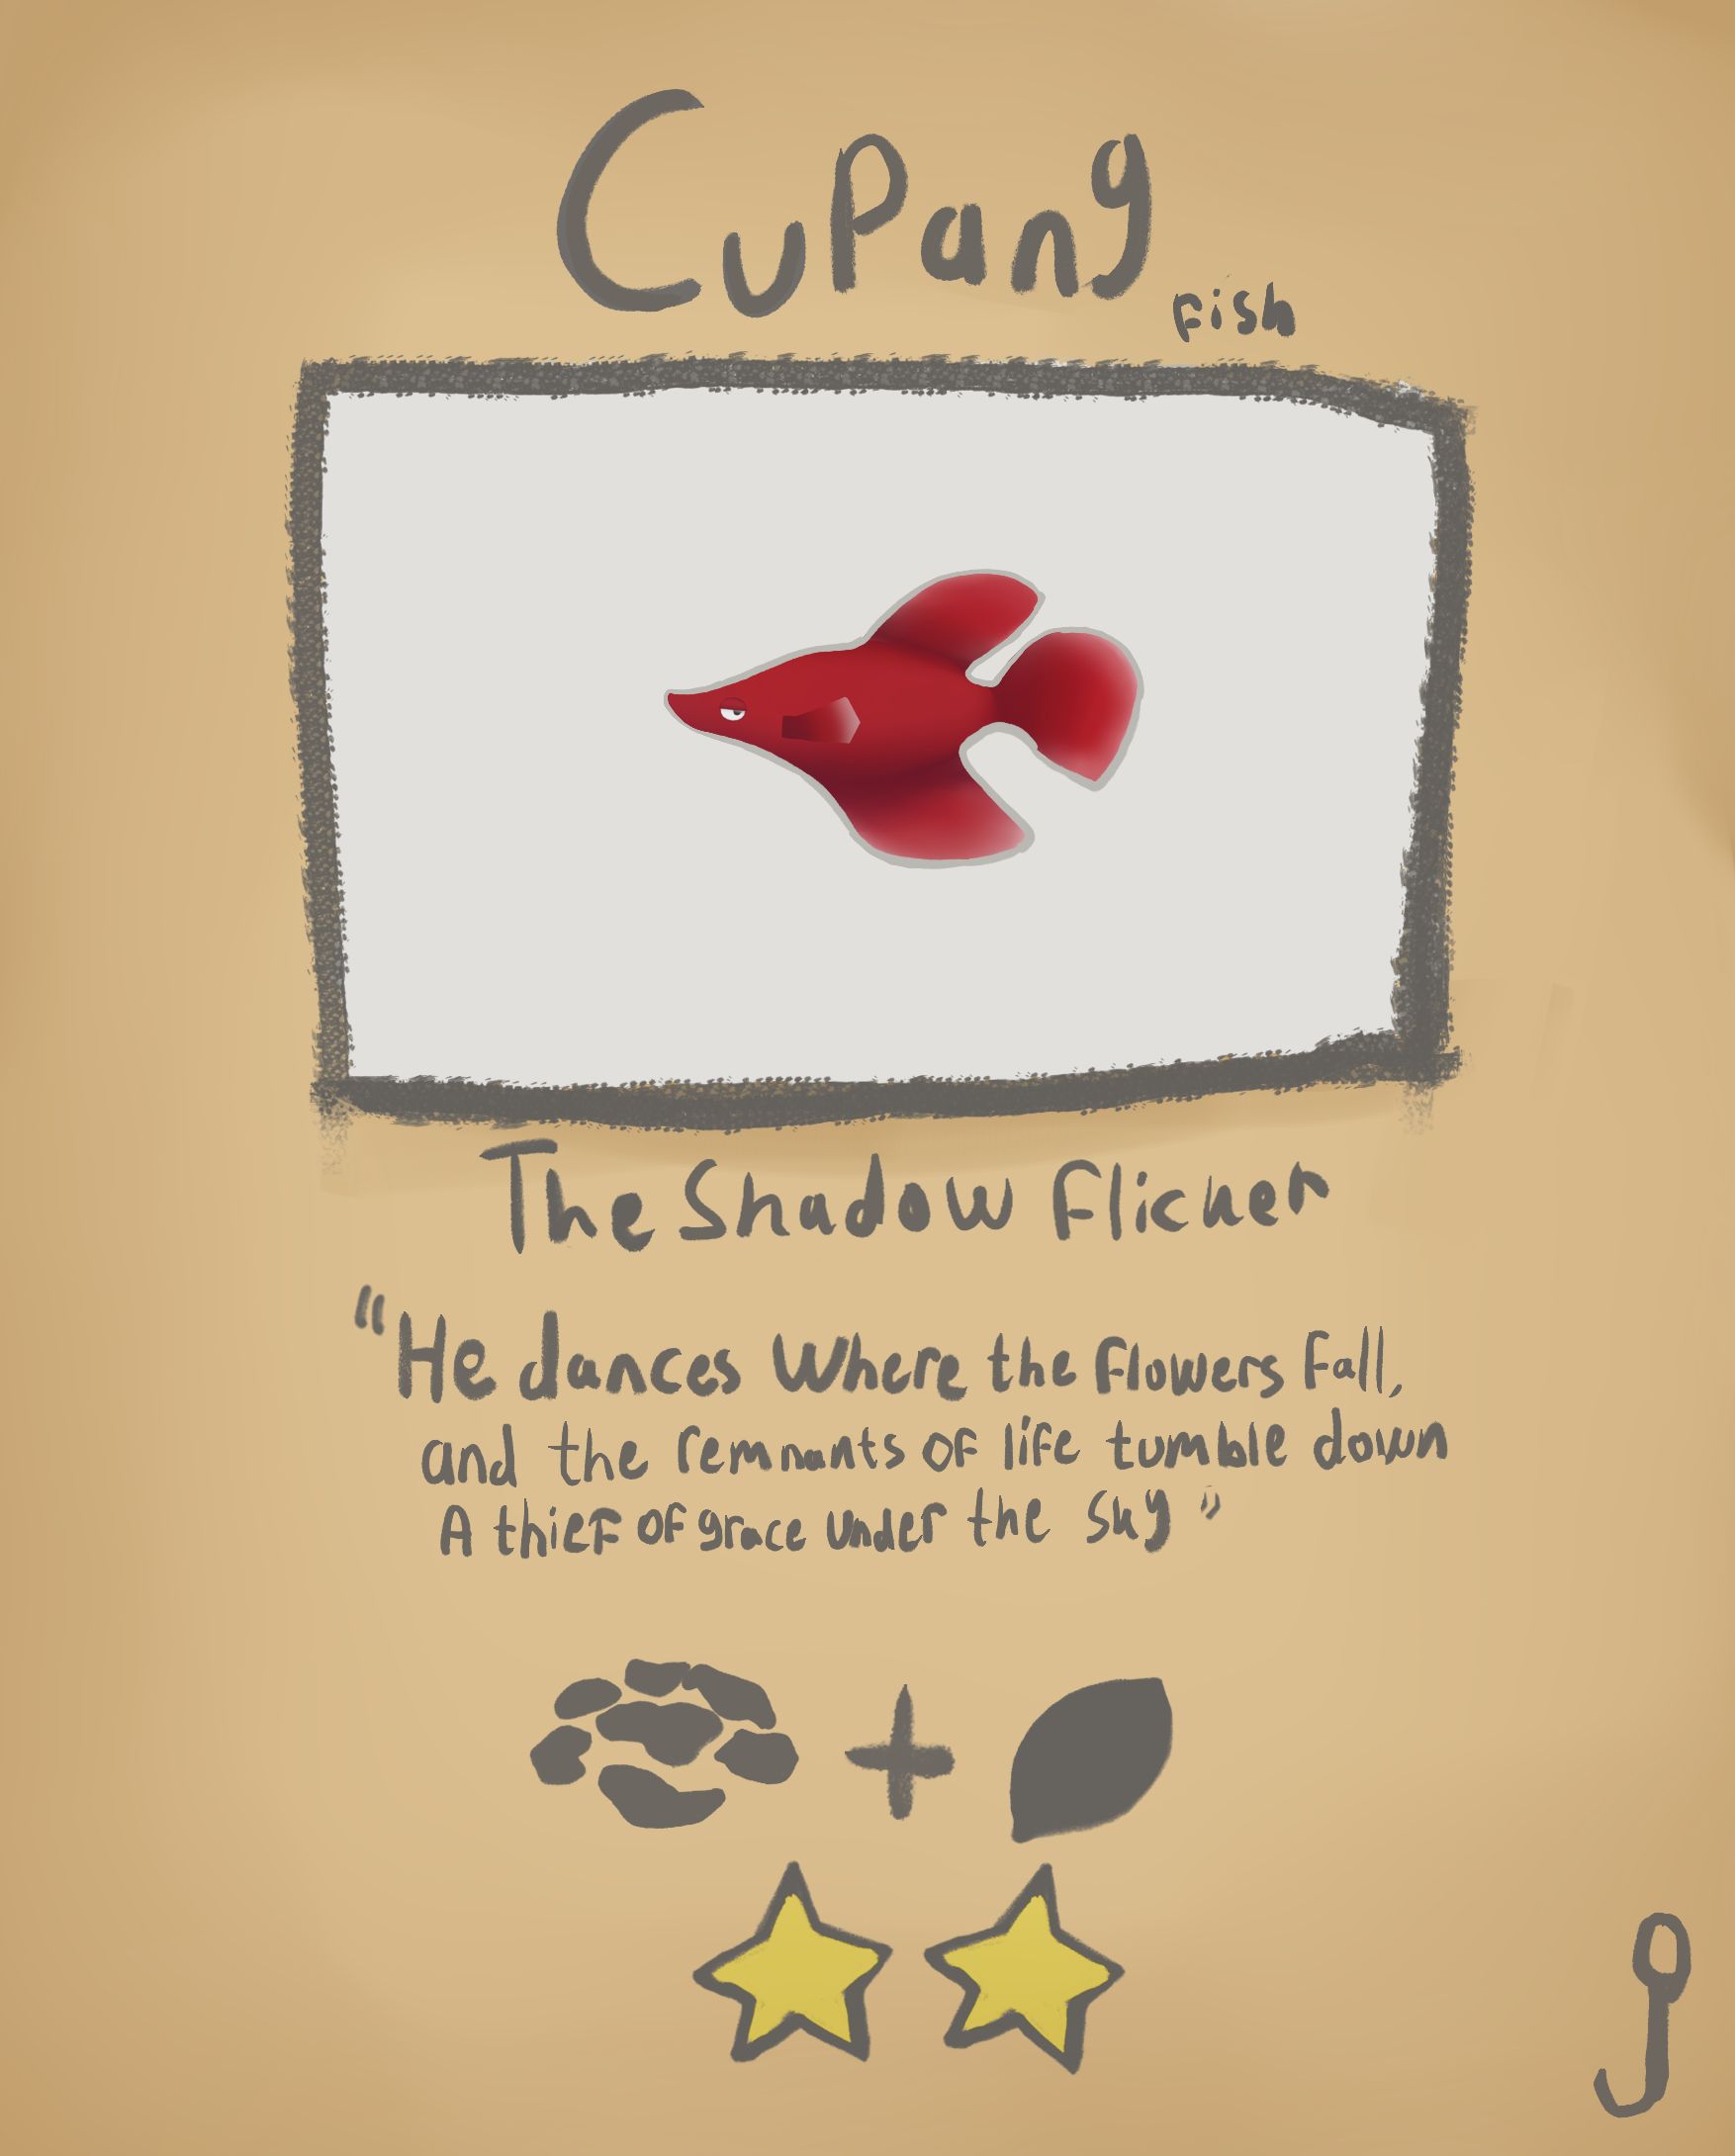 CuPang
fish
The Shadow Flicker
"He dances Where the flowers fall,
and the remnants of life tumble down
A thief of grace under the sky"